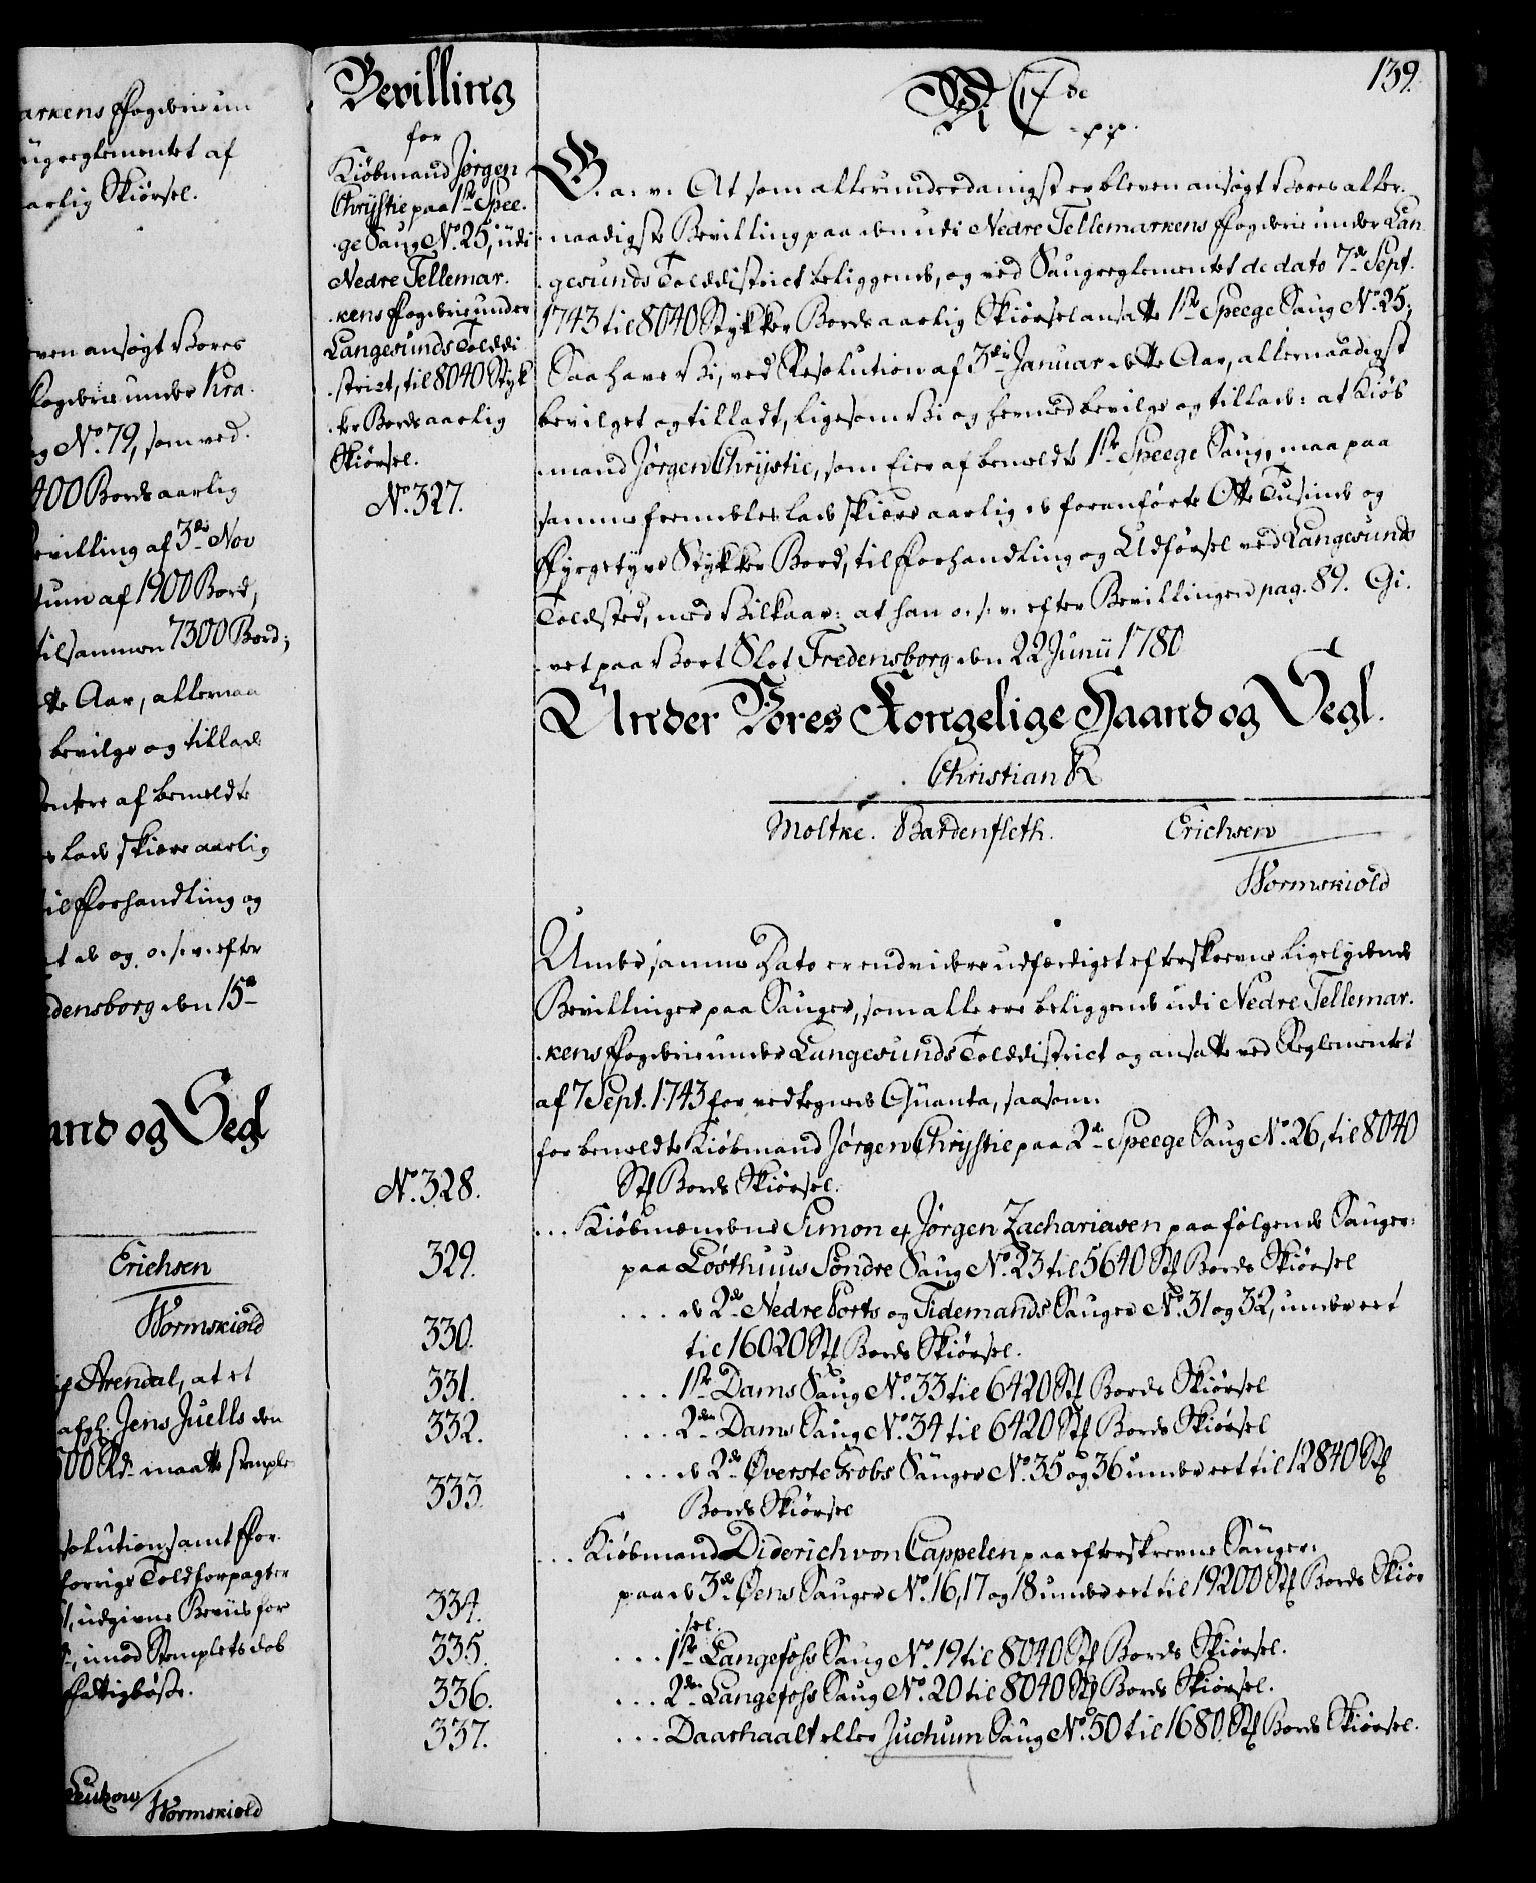 arkens Fogderie un
ugreglementet af
aarlig Skiørsel.
even ansøgt Vores
Fogderie under Kra-
g No. 79, som ved
400 Bords aarlig
Bevilling af 3de Nov
tum af 1900 Bord,
tilsammen 7300 Bord;
tte Aar, allernaa
bevilge og tillade
af bemeldte
lade skiære aarlig
til Forhandling og
o. s. v. efter
edensborg den 15de
and og Segl
Erichsen
Wormskiold
Arendal, at et
afg. Jens Juells den
500 Rd. maatte stemple
solution, samt For-
forrige Toldforpagter
udgivne Beviis for
imod Stemplets
Fattigbøsse.
Leutzow Wormskiold
Bevilling
for
Kiøbmand Jørgen
Chrystie paa 1ste Spee-
ge Saug No. 25, udi
Nedre Tellemar-
kens Fogderie under
Langesunds Toldди
strict, til 8040 Styk
ker Bords aarlig
Skiørsel.
No. 327.
139.
Wi C 7de
p: p.
G. a. v. At som allerunderdanigst er bleven ansøgt Vores aller-
naadigste Bevilling paa den udi Nedre Tellemarkens Fogderie under Lan
gesunds Tolddistrict beliggende, og ved Saugreglementet de dato 7de Sept.
1743 til 8040 Stykker Bords aarlig Skiørsel ansatte 1ste Speege Saug No. 25;
Saa have Vi, ved Resolution af 3die Januar dette Aar, allernaadigst
bevilget og tilladt, ligesom Vi og hermed bevilge og tillade: at Kiøb
mand Jørgen Chrystie, som Eier af bemeldte 1ste Speege Saug, maa paa
samme fremdeles lade skiære aarlig de foranførte Otte Tusinde og
Fyrgetyve Stykker Bord, til Forhandling og Udførsel ved Langesunds
Toldsted, med Vilkaar: at han o. s. v. efter Bevillingen pag. 89. Gi-
vet paa Vort Slot Fredensborg den 22 Junii 1780
Under Vores Kongelige Haand og Segl.
Christian R
Moltke. Bardenfleth. Erichsen
Wormskiold
Under samme Dato er endvidere udfærdiget efterskrevne ligelydende
Bevillinger paa Sauger, som alle ere beliggende udi Nedre Tellemar-
kens Fogderie under Langesunds Tolddistrict og ansatte ved Reglementet
af 7 Sept. 1743 for vedtegnede Quanta, saasom:
for bemeldte Kiøbmand Jørgen Chrystie paa 2de Speege Saug No. 26, til 8040
No. 328. Stk Bords Skiørsel.
... Kiøbmændene Simon et Jørgen Zachariasen paa følgende Sauger:
329. paa Løsthuus Søndre Saug No. 23 til 5640 Stk Bords Skiørsel
... de 2de Nedre Ports og Tidemands Sauger No. 31 og 32, under eet
330. til 16020 Stk Bords Skiørsel.
331. ... 1ste Dams Saug No. 33 til 6420 Stk Bords Skiørsel
332. ... 2den Dams Saug No. 34 til 6420 Stk Bords Skiørsel
... de 2de Øverste Sauger No. 35 og 36 under eet til 12840 Stk
333. Bords Skiørsel
... Kiøbmand Diderich von Cappelen paa efterskrevne Sauger:
334. paa de 3de Øens Sauger No. 16, 17 og 18 under eet til 19200 Stk Bords Skiør
sel.
335. ... 1ste Langefoss Saug No. 19 til 8040 Stk Bords Skiørsel.
336. ... 2den Langefoss Saug No. 20 til 8040 Stk Bords Skiørsel.
337. ... Daarhaalt eller Juchum Saug No. 50 til 1680 Stk Bords Skiørsel.